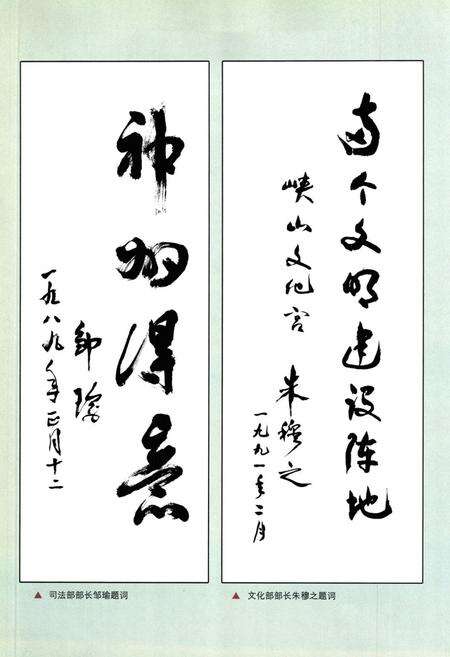 神 得意
邹瑜
一九八九年正月十二
▲ 司法部部长邹瑜题词
两个文明建设阵地
峡山文化宫
朱穆之
一九九一年二月
▲ 文化部部长朱穆之题词